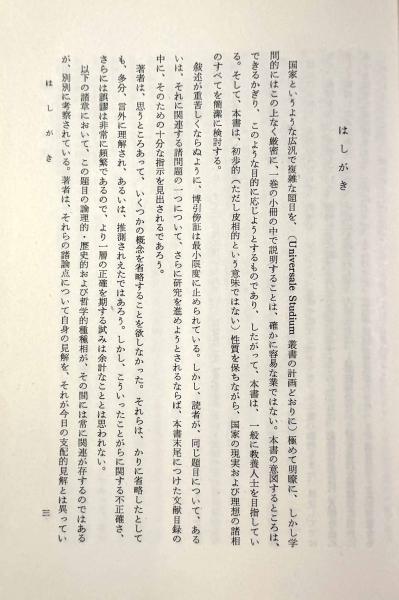 はしがき
国家というような広汎で複雑な題目を、(Universale Studium 叢書の計画どおりに)極めて明瞭に、しかし学
問的にはこの上なく厳密に、一巻の小冊の中で説明することは、確かに容易な業ではない。本書の意図するところは、
できるかぎり、このような目的に応じようとするものであり、したがって、本書は、一般に教養人士を目指してい
る。そして、本書は、初歩的(ただし皮相的という意味ではない)性質を保ちながら、国家の現実および理想の諸相
のすべてを簡潔に検討する。
叙述が重苦しくならぬように、博引傍証は最小限度に止められている。しかし、読者が、同じ題目について、ある
いは、それに関連する諸問題の一つについて、さらに研究を進めようとされるならば、本書末尾につけた文献目録の
中に、そのための十分な指示を見出されるであろう。
著者は、思うところあって、いくつかの概念を省略することを欲しなかった。それらは、かりに省略したとして
も、多分、言外に理解され、あるいは、推測されえたではあろう。しかし、こういったことがらに関する不正確さ、
さらには誤謬は非常に頻繁であるので、より一層の正確を期する試みは余計なこととは思われない。
以下の諸章において、この題目の論理的・歴史的および哲学的種種相が、その間には常に関連が存するのではある
が、別別に考察されている。著者は、それらの諸論点について自身の見解を、それが今日の支配的見解とは異ってい
はしがき
三